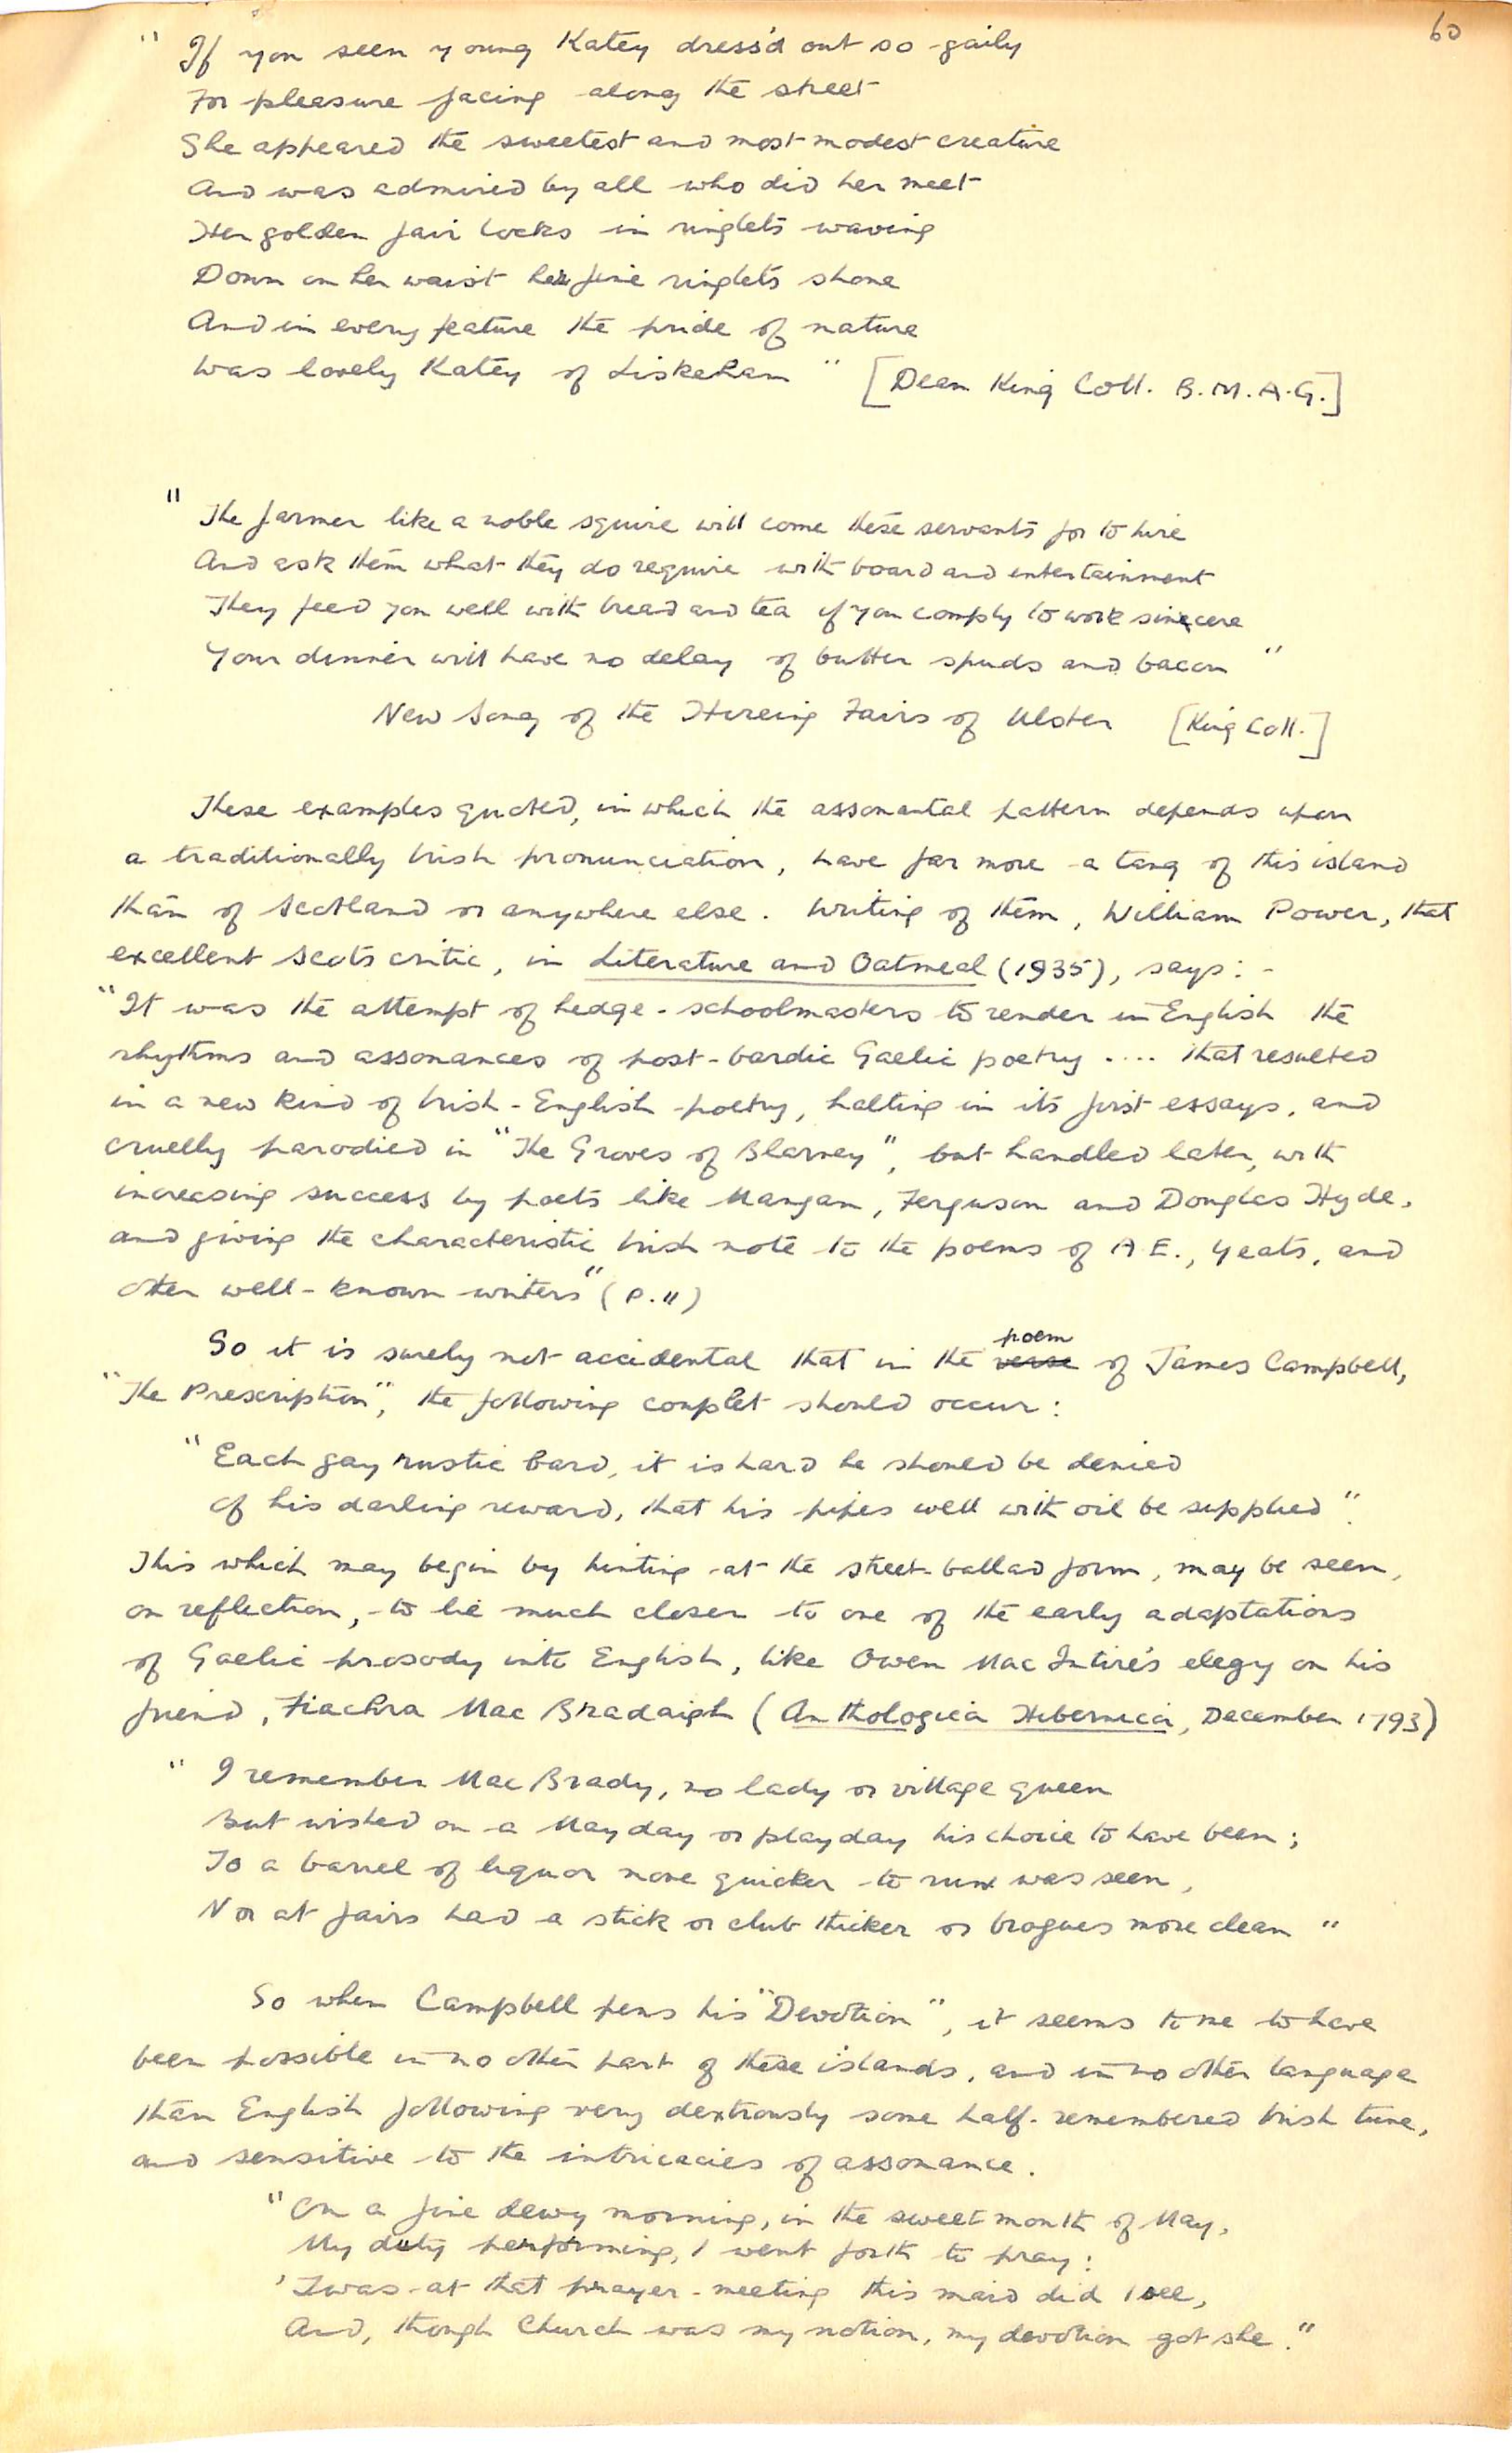 60
" If you seen young Katey dress'd out so gaily
For pleasure facing along the street
She appeared the sweetest and most modest creature
And was admired by all who did her meet
Her golden fair locks in ringlets waving
Down on her waist her fine ringlets shone
And in every feature the pride of nature
Was lovely Katey of Liskehan " [Dean King Coll. B.M.A.G.]
" The farmer like a noble squire will come these servants for to hire
And ask them what they do require with board and entertainment
They feed you well with bread and tea if you comply to work sincere
Your dinner will have no delay of butter spuds and bacon "
New Song of the Hireing Fairs of Ulster [King Coll.]
These examples quoted, in which the assonantal pattern depends upon
a traditionally Irish pronunciation, have far more a tang of this island
than of Scotland or anywhere else. Writing of them, William Power, that
excellent Scots critic, in Literature and Oatmeal (1935), says: -
"It was the attempt of hedge-schoolmasters to render in English the
rhythms and assonances of post-bardic Gaelic poetry .... that resulted
in a new kind of Irish-English poetry, halting in its first essays, and
cruelly parodied in "The Groves of Blarney", but handled later, with
increasing success by poets like Mangan, Ferguson and Douglas Hyde,
and giving the characteristic Irish note to the poems of A.E., Yeats, and
other well-known writers" (p.11)
So it is surely not accidental that in the verse poem of James Campbell,
"The Prescription", the following couplet should occur:
"Each gay rustic bard, it is hard he should be denied
Of his darling reward, that his pipes well with oil be supplied".
This which may begin by hinting at the street-ballad form, may be seen,
on reflection, to be much closer to one of the early adaptations
of Gaelic prosody into English, like Owen MacIntire's elegy on his
friend, Fiachra Mac Bradaigh (Anthologia Hibernica, December 1793)
" I remember MacBrady, no lady or village queen
But wished on a May day or play day his choice to have been;
To a barrel of liquor none quicker to run was seen,
Nor at fairs had a stick or club thicker or brogues more clean "
So when Campbell pens his "Devotion", it seems to me to have
been possible in no other part of these islands, and in no other language
than English following very dextrously some half-remembered Irish tune,
and sensitive to the intricacies of assonance.
"On a fine dewy morning, in the sweet month of May,
My duty performing, I went forth to pray:
'Twas at that prayer-meeting this maid did I see,
And, though Church was my notion, my devotion got she."